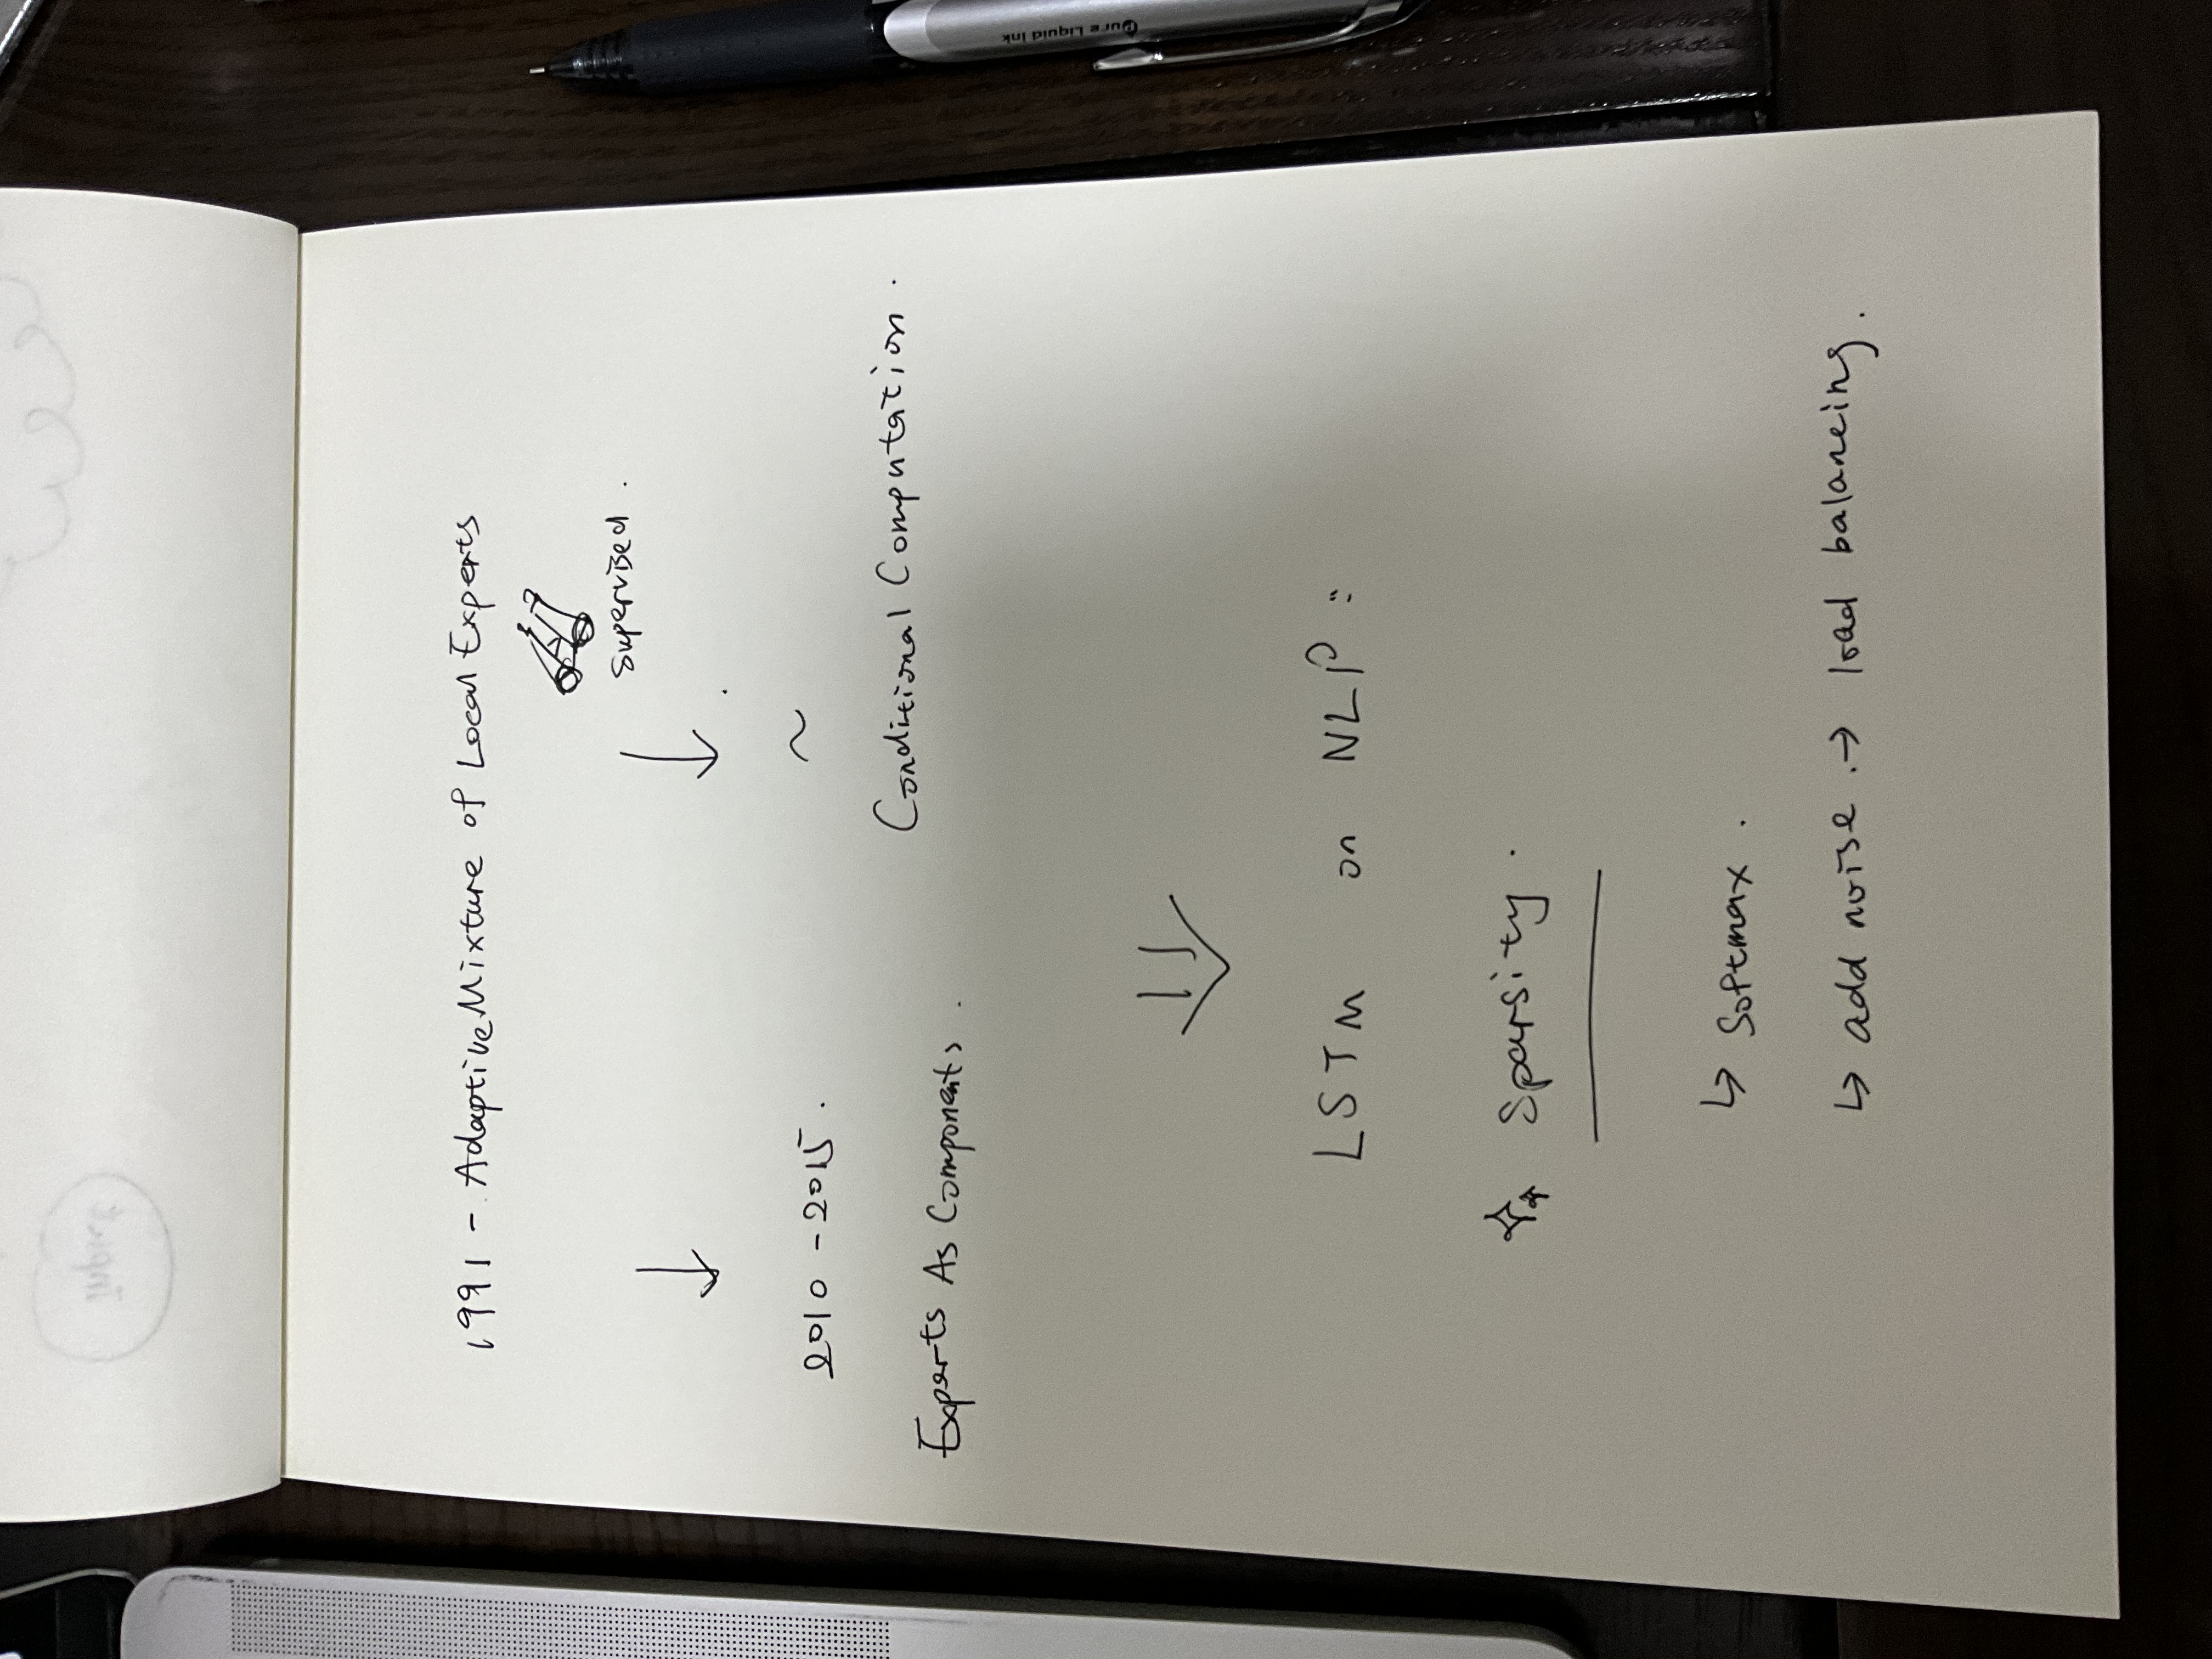 1991 - Adaptive Mixture of Local Experts
Supervised.
2010 - 2015.
~
Experts As Components.
Conditional Computation.
LSTM on NLP:
Sparsity.
↳ Softmax.
↳ add noise. → load balancing.
Pure Liquid Ink